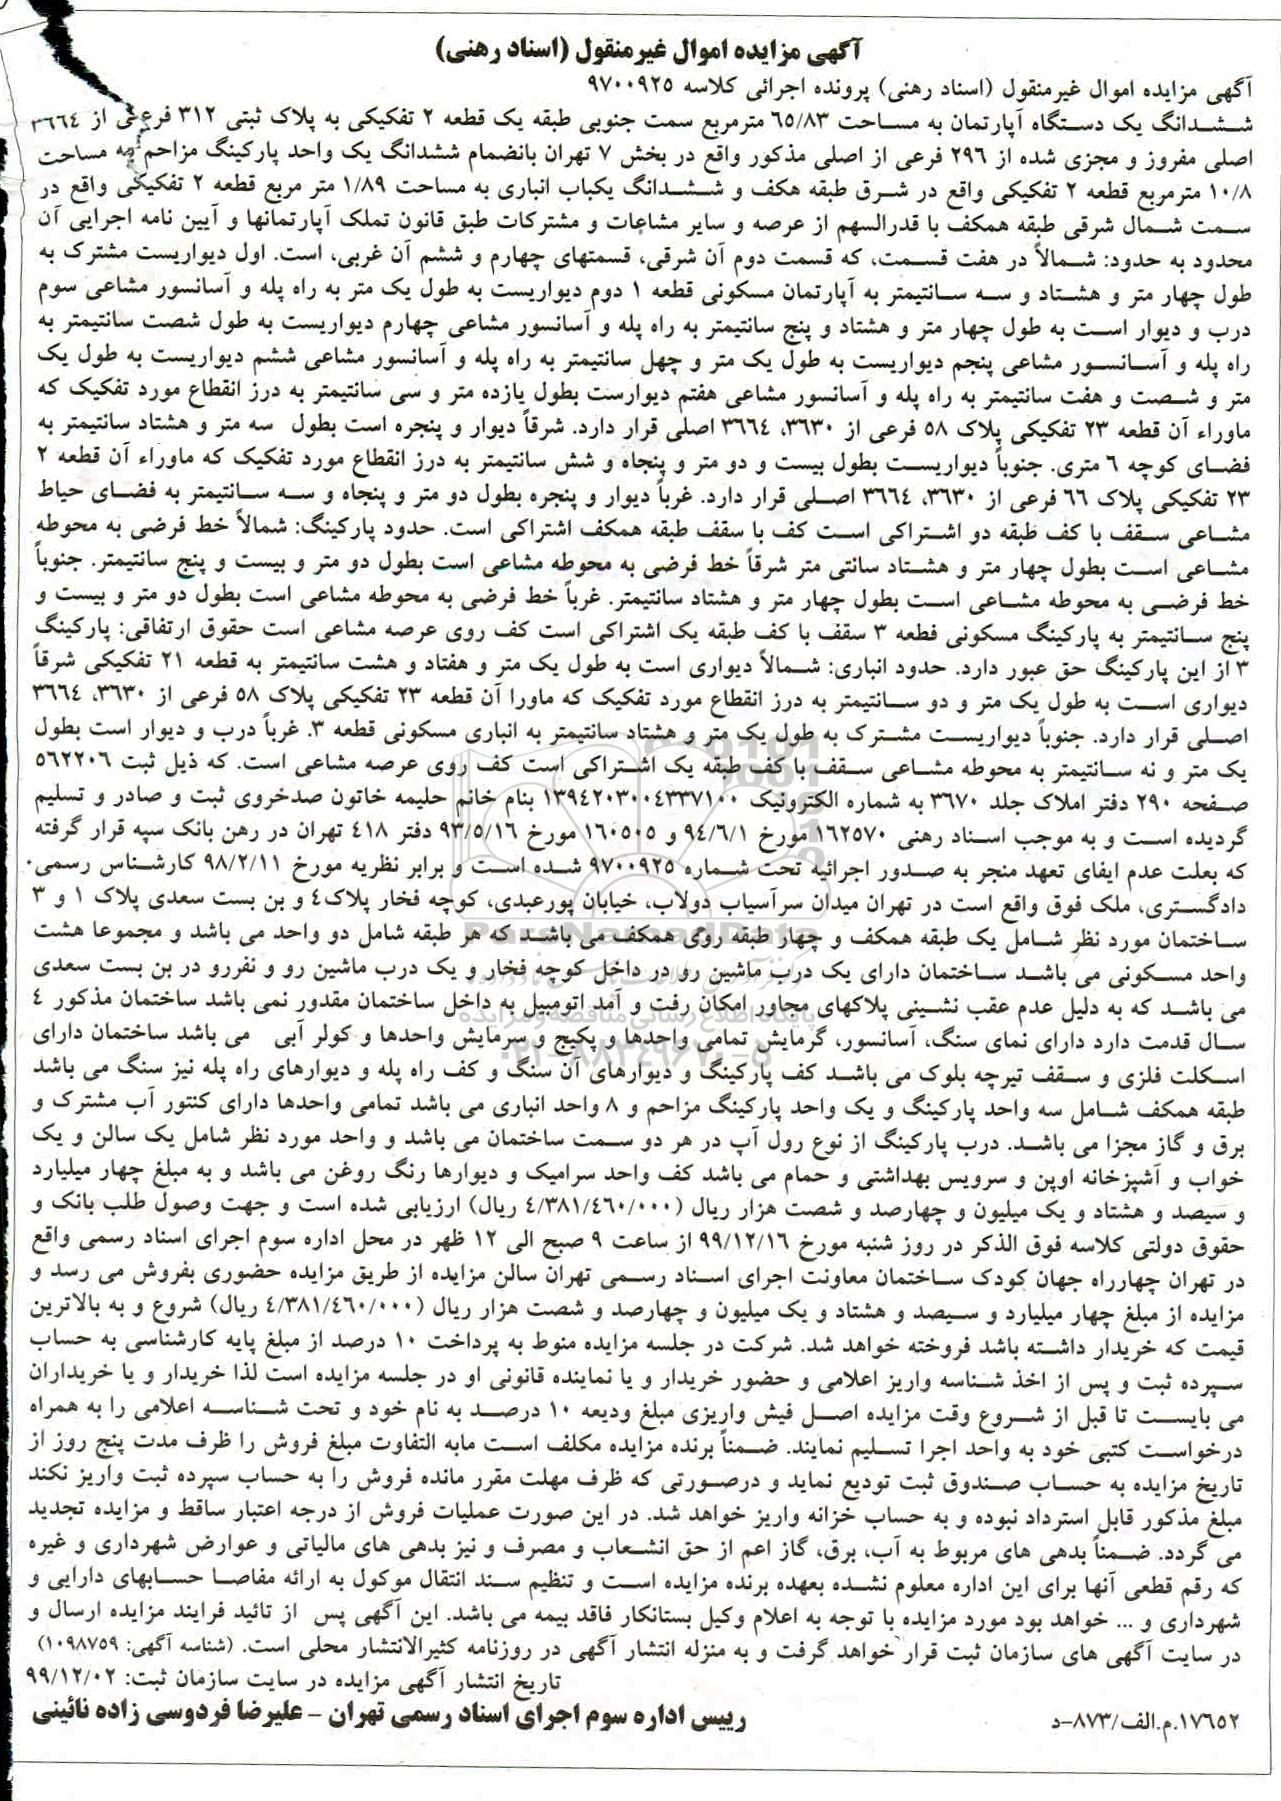 آگهی مزایده اموال غیرمنقول (اسناد رهنی)
آگهی مزایده اموال غیرمنقول (اسناد رهنی) پرونده اجرائی کلاسه ۹۷۰۰۹۲۵
ششدانگ یک دستگاه آپارتمان به مساحت ۶۵/۸۳ مترمربع سمت جنوبی طبقه یک قطعه ۲ تفکیکی به پلاک ثبتی ۳۱۲ فرعی از ۳۶۶۴
اصلی مفروز و مجزی شده از ۲۹۶ فرعی از اصلی مذکور واقع در بخش ۷ تهران بانضمام ششدانگ یک واحد پارکینگ مزاحم به مساحت
۱۰/۸ مترمربع قطعه ۲ تفکیکی واقع در شرق طبقه هکف و ششدانگ یکباب انباری به مساحت ۱/۸۹ متر مربع قطعه ۲ تفکیکی واقع در
سمت شمال شرقی طبقه همکف با قدرالسهم از عرصه و سایر مشاعات و مشترکات طبق قانون تملک آپارتمانها و آیین نامه اجرایی آن
محدود به حدود: شمالاً در هفت قسمت، که قسمت دوم آن شرقی، قسمتهای چهارم و ششم آن غربی، است. اول دیواریست مشترک به
طول چهار متر و هشتاد و سه سانتیمتر به آپارتمان مسکونی قطعه ۱ دوم دیواریست به طول یک متر به راه پله و آسانسور مشاعی سوم
درب و دیوار است به طول چهار متر و هشتاد و پنج سانتیمتر به راه پله و آسانسور مشاعی چهارم دیواریست به طول شصت سانتیمتر به
راه پله و آسانسور مشاعی پنجم دیواریست به طول یک متر و چهل سانتیمتر به راه پله و آسانسور مشاعی ششم دیواریست به طول یک
متر و شصت و هفت سانتیمتر به راه پله و آسانسور مشاعی هفتم دیوارست بطول یازده متر و سی سانتیمتر به درز انقطاع مورد تفکیک که
ماوراء آن قطعه ۲۳ تفکیکی پلاک ۵۸ فرعی از ۳۶۳۰، ۳۶۶۴ اصلی قرار دارد. شرقاً دیوار و پنجره است بطول سه متر و هشتاد سانتیمتر به
فضای کوچه ۶ متری. جنوباً دیواریست بطول بیست و دو متر و پنجاه و شش سانتیمتر به درز انقطاع مورد تفکیک که ماوراء آن قطعه ۲
۲۳ تفکیکی پلاک ۶۶ فرعی از ۳۶۳۰، ۳۶۶۴ اصلی قرار دارد. غرباً دیوار و پنجره بطول دو متر و پنجاه و سه سانتیمتر به فضای حیاط
مشاعی سقف با کف طبقه دو اشتراکی است کف با سقف طبقه همکف اشتراکی است. حدود پارکینگ: شمالاً خط فرضی به محوطه
مشاعی است بطول چهار متر و هشتاد سانتی متر شرقاً خط فرضی به محوطه مشاعی است بطول دو متر و بیست و پنج سانتیمتر. جنوباً
خط فرضی به محوطه مشاعی است بطول چهار متر و هشتاد سانتیمتر. غرباً خط فرضی به محوطه مشاعی است بطول دو متر و بیست و
پنج سانتیمتر به پارکینگ مسکونی قطعه ۳ سقف با کف طبقه یک اشتراکی است کف روی عرصه مشاعی است حقوق ارتفاقی: پارکینگ
۳ از این پارکینگ حق عبور دارد. حدود انباری: شمالاً دیواری است به طول یک متر و هفتاد و هشت سانتیمتر به قطعه ۲۱ تفکیکی شرقاً
دیواری است به طول یک متر و دو سانتیمتر به درز انقطاع مورد تفکیک که ماورا آن قطعه ۲۳ تفکیکی پلاک ۵۸ فرعی از ۳۶۳۰، ۳۶۶۴
اصلی قرار دارد. جنوباً دیواریست مشترک به طول یک متر و هشتاد سانتیمتر به انباری مسکونی قطعه ۳. غرباً درب و دیوار است بطول
یک متر و نه سانتیمتر به محوطه مشاعی سقف با کف طبقه یک اشتراکی است کف روی عرصه مشاعی است. که ذیل ثبت ۵۶۲۲۰۶
صفحه ۲۹۰ دفتر املاک جلد ۳۶۷۰ به شماره الکترونیک ۱۳۹۴۲۰۳۰۰۴۳۳۷۱۰۰ بنام خانم حلیمه خاتون صدخروی ثبت و صادر و تسلیم
گردیده است و به موجب اسناد رهنی ۱۶۲۵۷۰ مورخ ۹۴/۶/۱ و ۱۶۰۵۰۵ مورخ ۹۳/۵/۱۶ دفتر ۴۱۸ تهران در رهن بانک سپه قرار گرفته
که بعلت عدم ایفای تعهد منجر به صدور اجرائیه تحت شماره ۹۷۰۰۹۲۵ شده است و برابر نظریه مورخ ۹۸/۲/۱۱ کارشناس رسمی
دادگستری، ملک فوق واقع است در تهران میدان سرآسیاب دولاب، خیابان پورعبدی، کوچه فخار پلاک۴ و بن بست سعدی پلاک ۱ و ۳
ساختمان مورد نظر شامل یک طبقه همکف و چهار طبقه روی همکف می باشد که هر طبقه شامل دو واحد می باشد و مجموعا هشت
واحد مسکونی می باشد ساختمان دارای یک درب ماشین رو در داخل کوچه فخار و یک درب ماشین رو و نفررو در بن بست سعدی
می باشد که به دلیل عدم عقب نشینی پلاکهای مجاور امکان رفت و آمد اتومبیل به داخل ساختمان مقدور نمی باشد ساختمان مذکور ۴
سال قدمت دارد دارای نمای سنگ، آسانسور، گرمایش تمامی واحدها و پکیج و سرمایش واحدها و کولر آبی می باشد ساختمان دارای
اسکلت فلزی و سقف تیرچه بلوک می باشد کف پارکینگ و دیوارهای آن سنگ و کف راه پله و دیوارهای راه پله نیز سنگ می باشد
طبقه همکف شامل سه واحد پارکینگ و یک واحد پارکینگ مزاحم و ۸ واحد انباری می باشد تمامی واحدها دارای کنتور آب مشترک و
برق و گاز مجزا می باشد. درب پارکینگ از نوع رول آپ در هر دو سمت ساختمان می باشد و واحد مورد نظر شامل یک سالن و یک
خواب و آشپزخانه اوپن و سرویس بهداشتی و حمام می باشد کف واحد سرامیک و دیوارها رنگ روغن می باشد و به مبلغ چهار میلیارد
و سیصد و هشتاد و یک میلیون و چهارصد و شصت هزار ریال (۴/۳۸۱/۴۶۰/۰۰۰ ریال) ارزیابی شده است و جهت وصول طلب بانک و
حقوق دولتی کلاسه فوق الذکر در روز شنبه مورخ ۹۹/۱۲/۱۶ از ساعت ۹ صبح الی ۱۲ ظهر در محل اداره سوم اجرای اسناد رسمی واقع
در تهران چهارراه جهان کودک ساختمان معاونت اجرای اسناد رسمی تهران سالن مزایده از طریق مزایده حضوری بفروش می رسد و
مزایده از مبلغ چهار میلیارد و سیصد و هشتاد و یک میلیون و چهارصد و شصت هزار ریال (۴/۳۸۱/۴۶۰/۰۰۰ ریال) شروع و به بالاترین
قیمت که خریدار داشته باشد فروخته خواهد شد. شرکت در جلسه مزایده منوط به پرداخت ۱۰ درصد از مبلغ پایه کارشناسی به حساب
سپرده ثبت و پس از اخذ شناسه واریز اعلامی و حضور خریدار و یا نماینده قانونی او در جلسه مزایده است لذا خریدار و یا خریداران
می بایست تا قبل از شروع وقت مزایده اصل فیش واریزی مبلغ ودیعه ۱۰ درصد به نام خود و تحت شناسه اعلامی را به همراه
درخواست کتبی خود به واحد اجرا تسلیم نمایند. ضمناً برنده مزایده مکلف است مابه التفاوت مبلغ فروش را ظرف مدت پنج روز از
تاریخ مزایده به حساب صندوق ثبت تودیع نماید و درصورتی که ظرف مهلت مقرر مانده فروش را به حساب سپرده ثبت واریز نکند
مبلغ مذکور قابل استرداد نبوده و به حساب خزانه واریز خواهد شد. در این صورت عملیات فروش از درجه اعتبار ساقط و مزایده تجدید
می گردد. ضمناً بدهی های مربوط به آب، برق، گاز اعم از حق انشعاب و مصرف و نیز بدهی های مالیاتی و عوارض شهرداری و غیره
که رقم قطعی آنها برای این اداره معلوم نشده بعهده برنده مزایده است و تنظیم سند انتقال موکول به ارائه مفاصا حسابهای دارایی و
شهرداری و ... خواهد بود مورد مزایده با توجه به اعلام وکیل بستانکار فاقد بیمه می باشد. این آگهی پس از تائید فرایند مزایده ارسال و
در سایت آگهی های سازمان ثبت قرار خواهد گرفت و به منزله انتشار آگهی در روزنامه کثیرالانتشار محلی است. (شناسه آگهی: ۱۰۹۸۷۵۹)
تاریخ انتشار آگهی مزایده در سایت سازمان ثبت: ۹۹/۱۲/۰۲
رییس اداره سوم اجرای اسناد رسمی تهران – علیرضا فردوسی زاده نائینی
۱۷۶۵۲.م.الف/۸۷۳-د
ParsNamadData
پایگاه اطلاع رسانی مناقصه و مزایده
۰۲۱-۸۸۳۴۹۶۷۰-۵